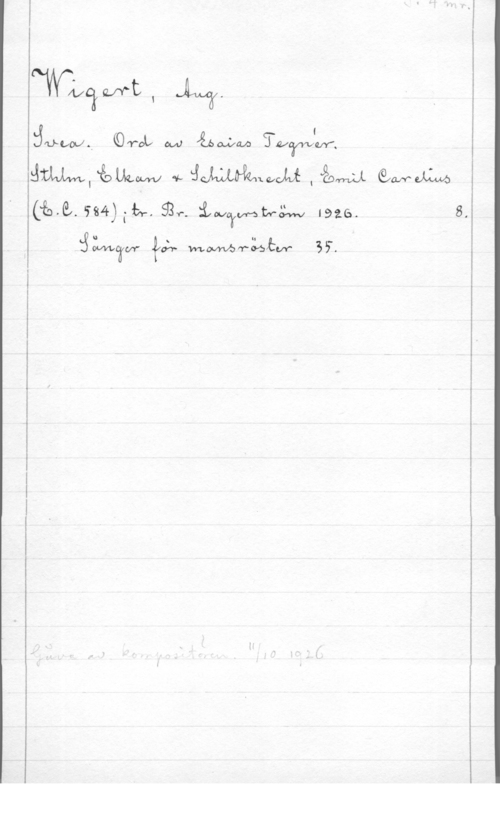 4 mr.
Wigert, Aug.
Svea. Ord av Esaias Tegnér.
Sthlm, Elkan & Schildknecht, Emil Carelius
(E.C. 584); tr. Br. Lagerström 1926. 8.
Sånger för mansröster 35.
Gåva av kompositören. 11/10 1926